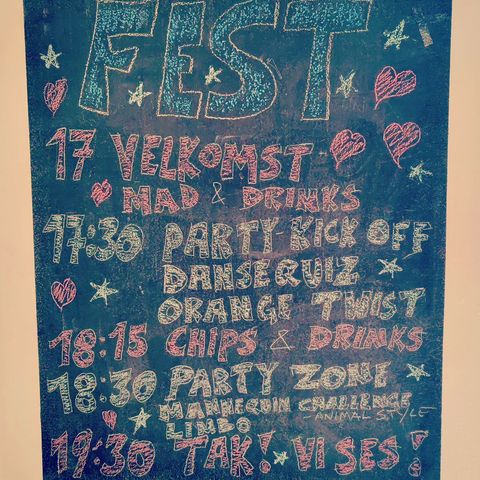 FEST
17 VELKOMST
MAD & DRINKS
17:30 PARTY KICK OFF
DANSEQUIZ
ORANGE TWIST
18:15 CHIPS & DRINKS
18:30 PARTY ZONE
MANNEQUIN CHALLENGE
- ANIMAL STYLE
LIMBO
19:30 TAK! VI SES!